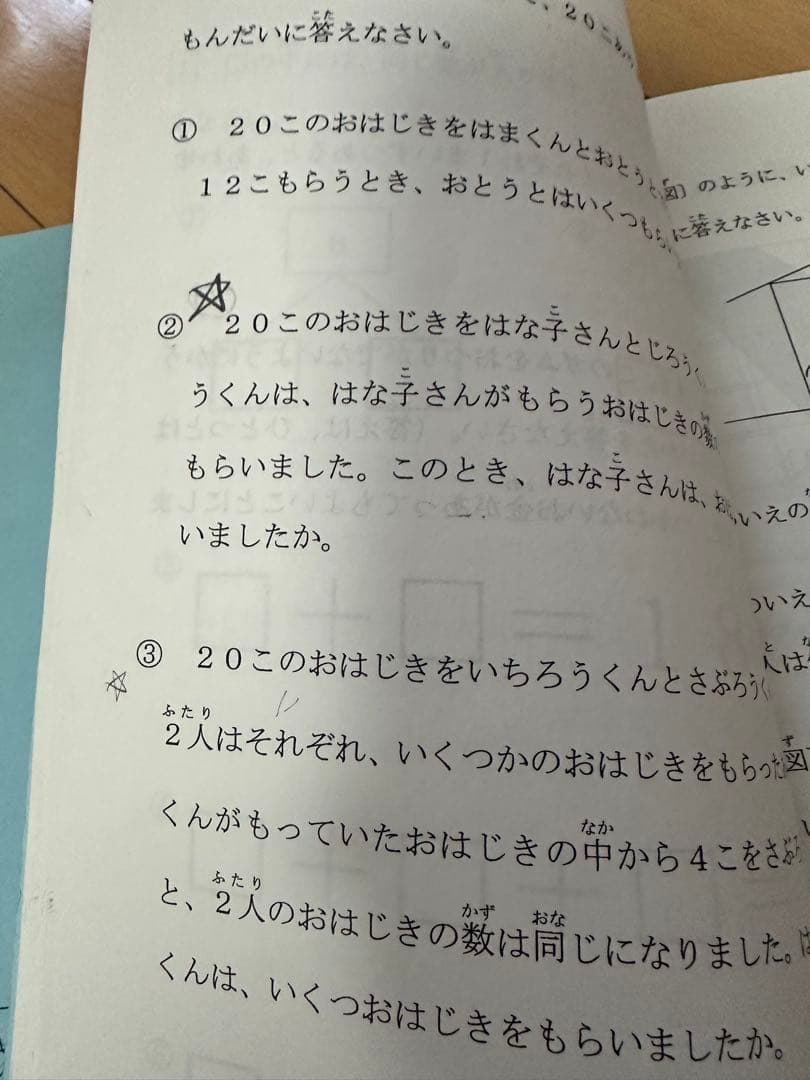 、20こ
もんだいに答えなさい。
① 20このおはじきをはまくんとおとうと
12こもらうとき、おとうとはいくつもら
② 20このおはじきをはな子さんとじろうく
うくんは、はな子さんがもらうおはじきの数
もらいました。このとき、はな子さんは、
いましたか。
③ 20このおはじきをいちろうくんとさぶろうく
2人はそれぞれ、いくつかのおはじきをもらった
くんがもっていたおはじきの中から4こをさぶろ
と、2人のおはじきの数は同じになりました。は
くんは、いくつおはじきをもらいましたか。
図〕のように、い
に答えなさい。
いえの
ついえ
人は
図